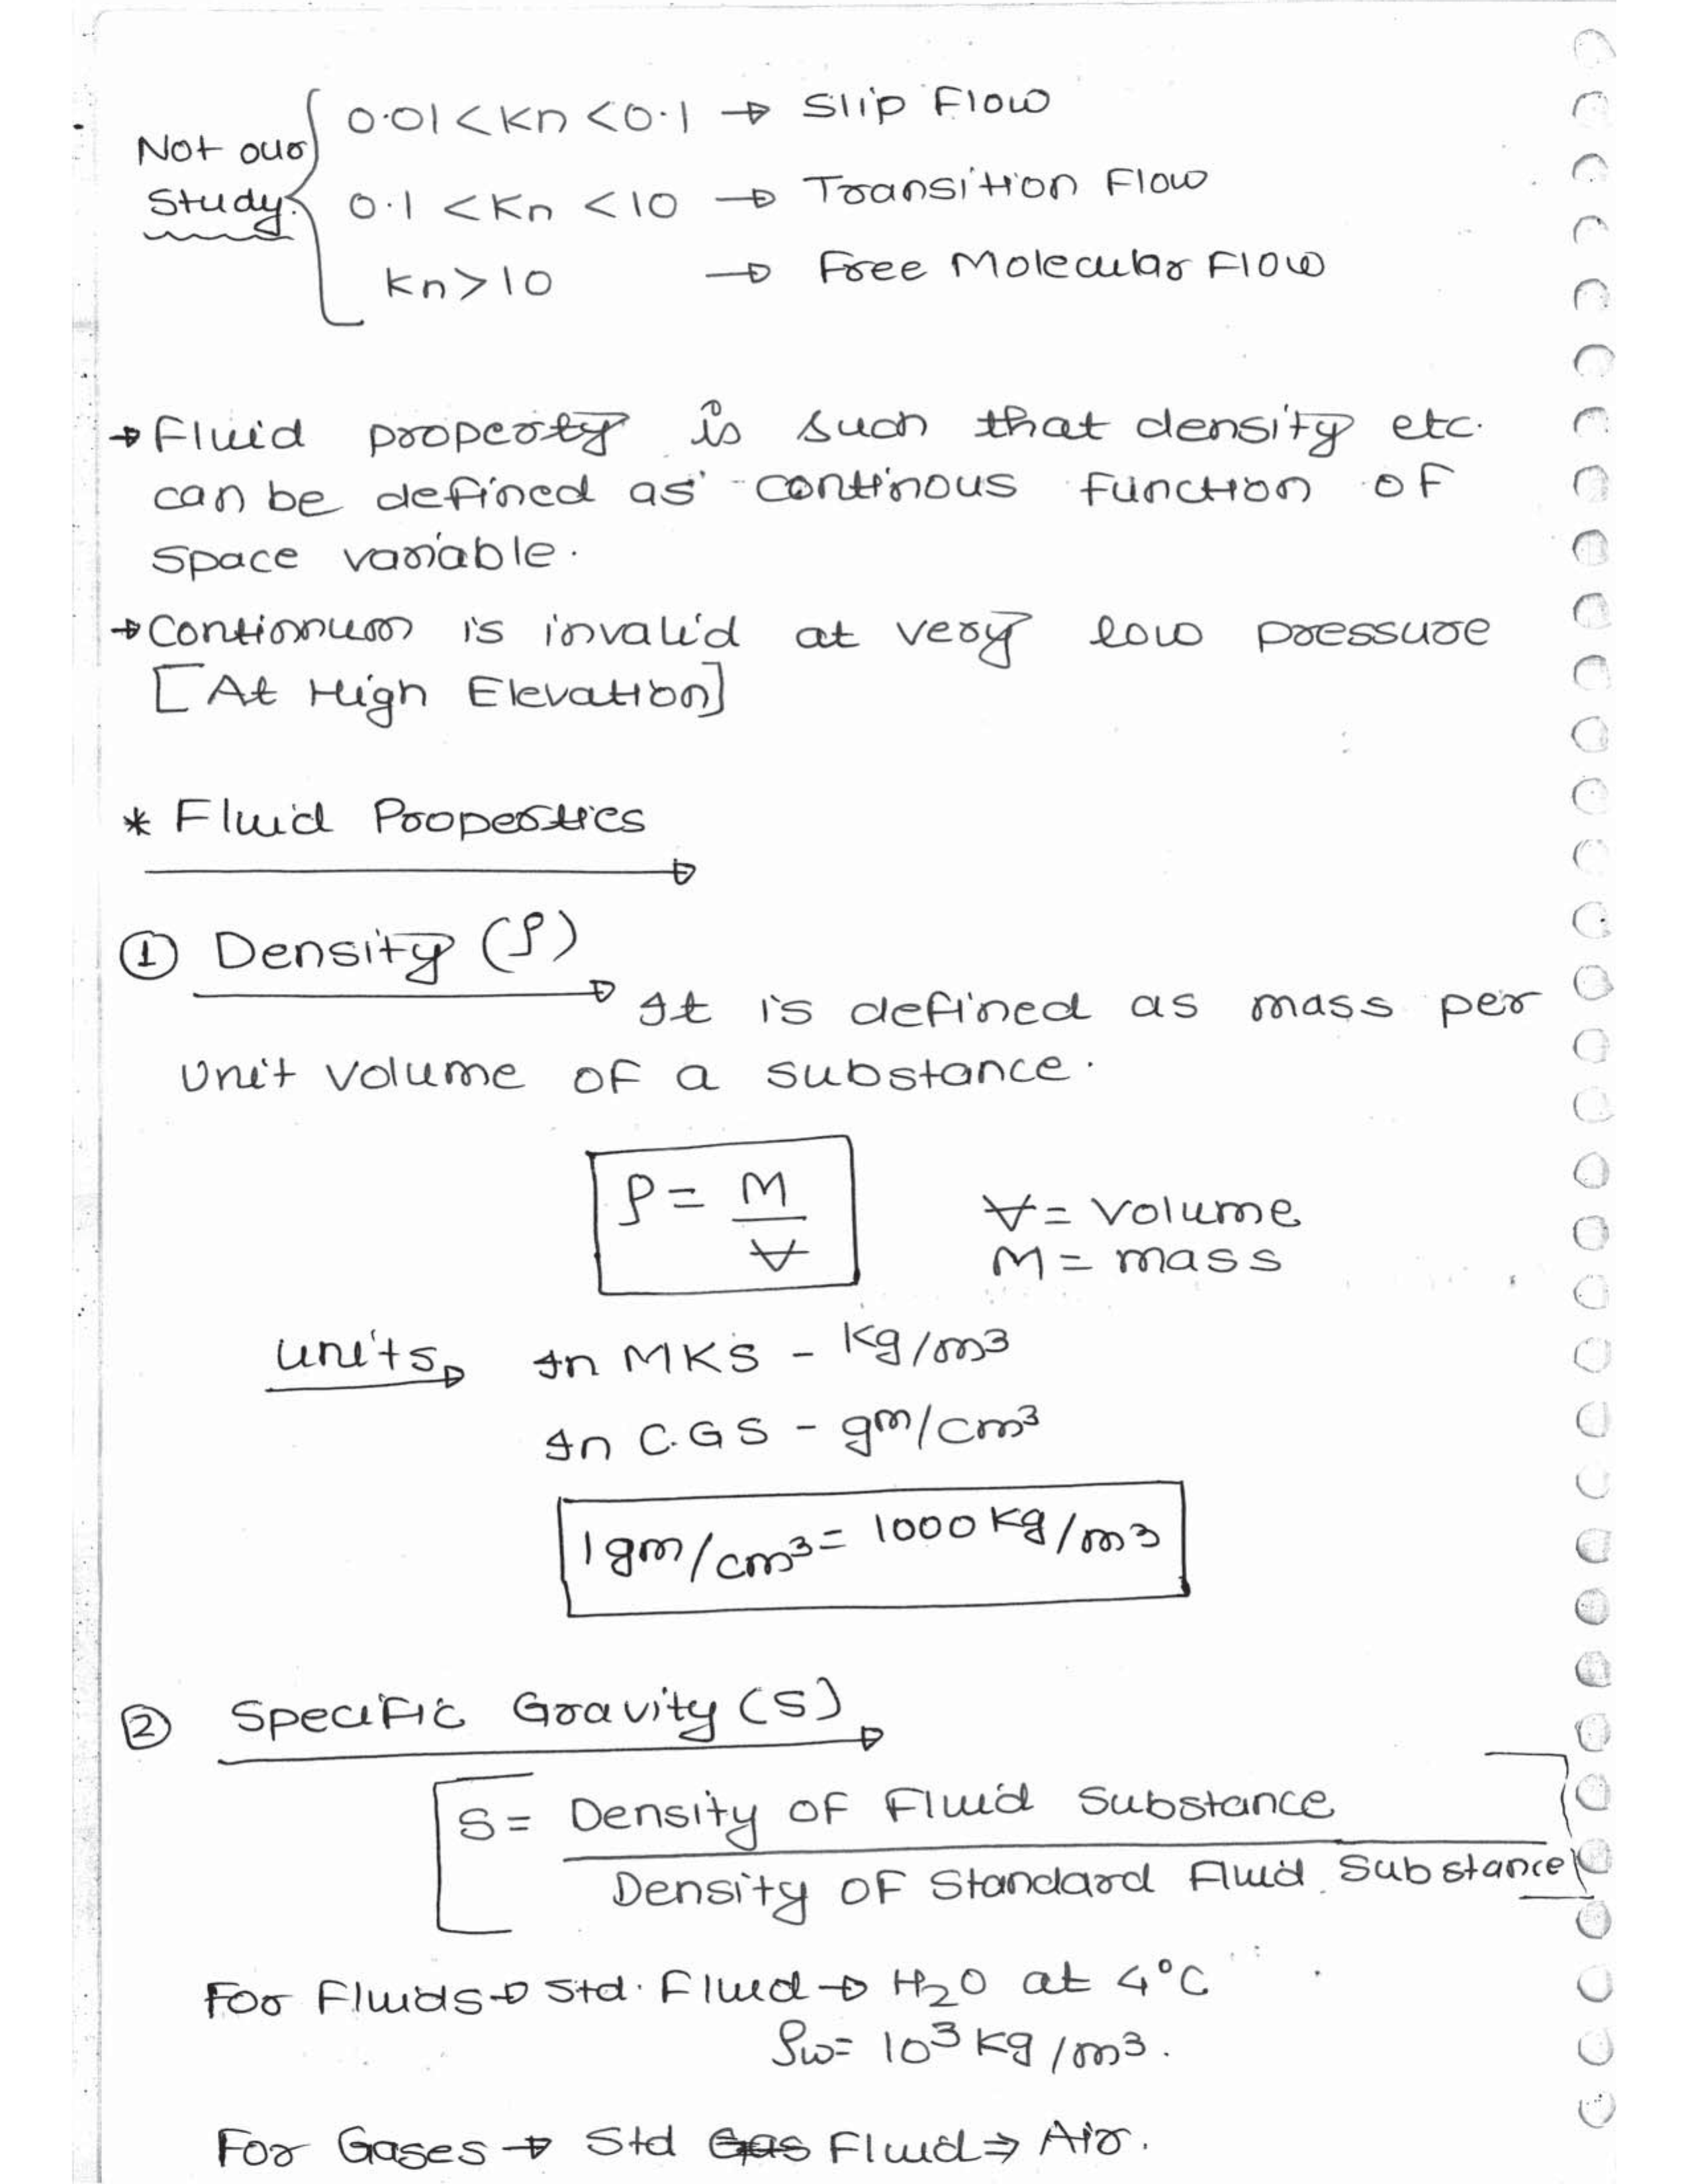 0.01 < Kn < 0.1 → Slip Flow
Not our
Study
0.1 < Kn < 10 → Transition Flow
Kn > 10 → Free Molecular Flow
→ Fluid property is such that density etc.
can be defined as continous function of
space variable.
→ Continnum is invalid at very low pressure
[At High Elevation]
* Fluid Properties
① Density (ρ)
It is defined as mass per
unit volume of a substance.
ρ = M / V̶
V̶ = Volume
M = mass
units → In MKS - kg/m³
In C.G.S - gm/cm³
1 gm/cm³ = 1000 kg/m³
② Specific Gravity (S)
S = Density of Fluid Substance
Density of Standard Fluid Substance
For Fluids → Std. Fluid → H₂O at 4°C
ρw = 10³ kg/m³.
For Gases → Std G̶a̶s̶ Fluid ⇒ Air.